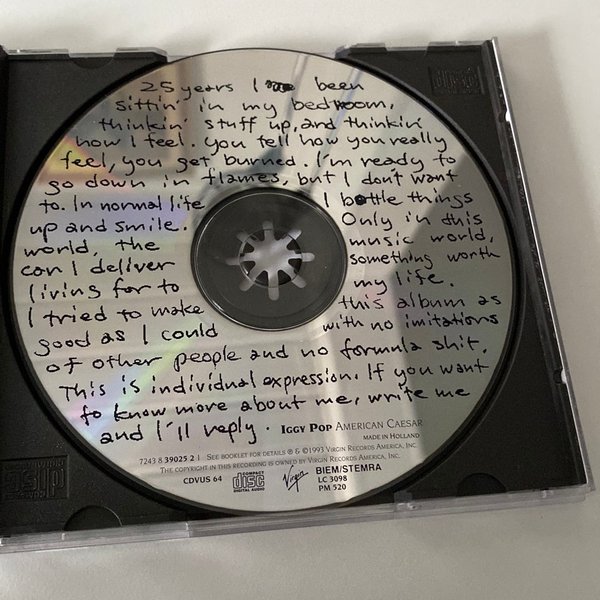 25 years I been
sittin' in my bedroom,
thinkin' stuff up, and thinkin'
how I feel. You tell how you really
feel, you get burned. I'm ready to
go down in flames, but I don't want
to. In normal life I bottle things
up and smile. Only in this
world, the music world,
can I deliver something worth
living for to my life.
I tried to make this album as
good as I could with no imitations
of other people and no formula shit.
This is individual expression. If you want
to know more about me, write me
and I'll reply. IGGY POP AMERICAN CAESAR
MADE IN HOLLAND
7243 8 39025 2 | SEE BOOKLET FOR DETAILS ℗ & ©1993 VIRGIN RECORDS AMERICA, INC.
THE COPYRIGHT IN THIS RECORDING IS OWNED BY VIRGIN RECORDS AMERICA, INC.
CDVUS 64 COMPACT disc DIGITAL AUDIO Virgin BIEM/STEMRA
LC 3098
PM 520